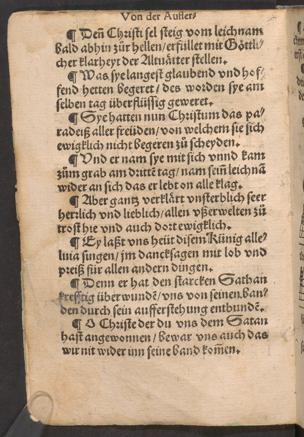 Von der Aufferſ
¶ Deñ Chriſti ſel ſteig vom leichnam
bald abhin zůr hellen/erfüllet mit Göttli⸗
cher klarheyt der Altuätter ſtellen.
¶ Was ſye langeſt glaubend vnd hof⸗
fend hetten begeret/des worden ſye am
ſelben tag überflüſſig geweret.
¶ Sye hatten nun Chriſtum das pa⸗
radeiß aller freüden/von welchem ſie ſich
ewigklich nicht begeren zů ſcheyden.
¶ Vnd er nam ſye mit ſich vnnd kam
zům grab am dritte tag/nam ſein leichnã
wider an ſich das er lebt on alle klag.
¶ Aber gantz verklårt vnſterblich ſeer
herrlich vnd lieblich/allen vßerwelten zů
troſt hie vnd auch dort ewigklich.
¶ Ey laßt vns heüt diſem Künig alle⸗
luia ſingen/jm danckſagen mit lob vnd
preiß für allen andern dingen.
¶ Denn er hat den ſtarcken Sathan
krefftig überwundẽ/vns von ſeinen ban⸗
den durch ſein aufferſtehung enthundẽ.
¶ O Chriſte der du vns dem Satan
haſt angewonnen/bewar vns auch das
wir nit wider inn ſeine band kom̃en.